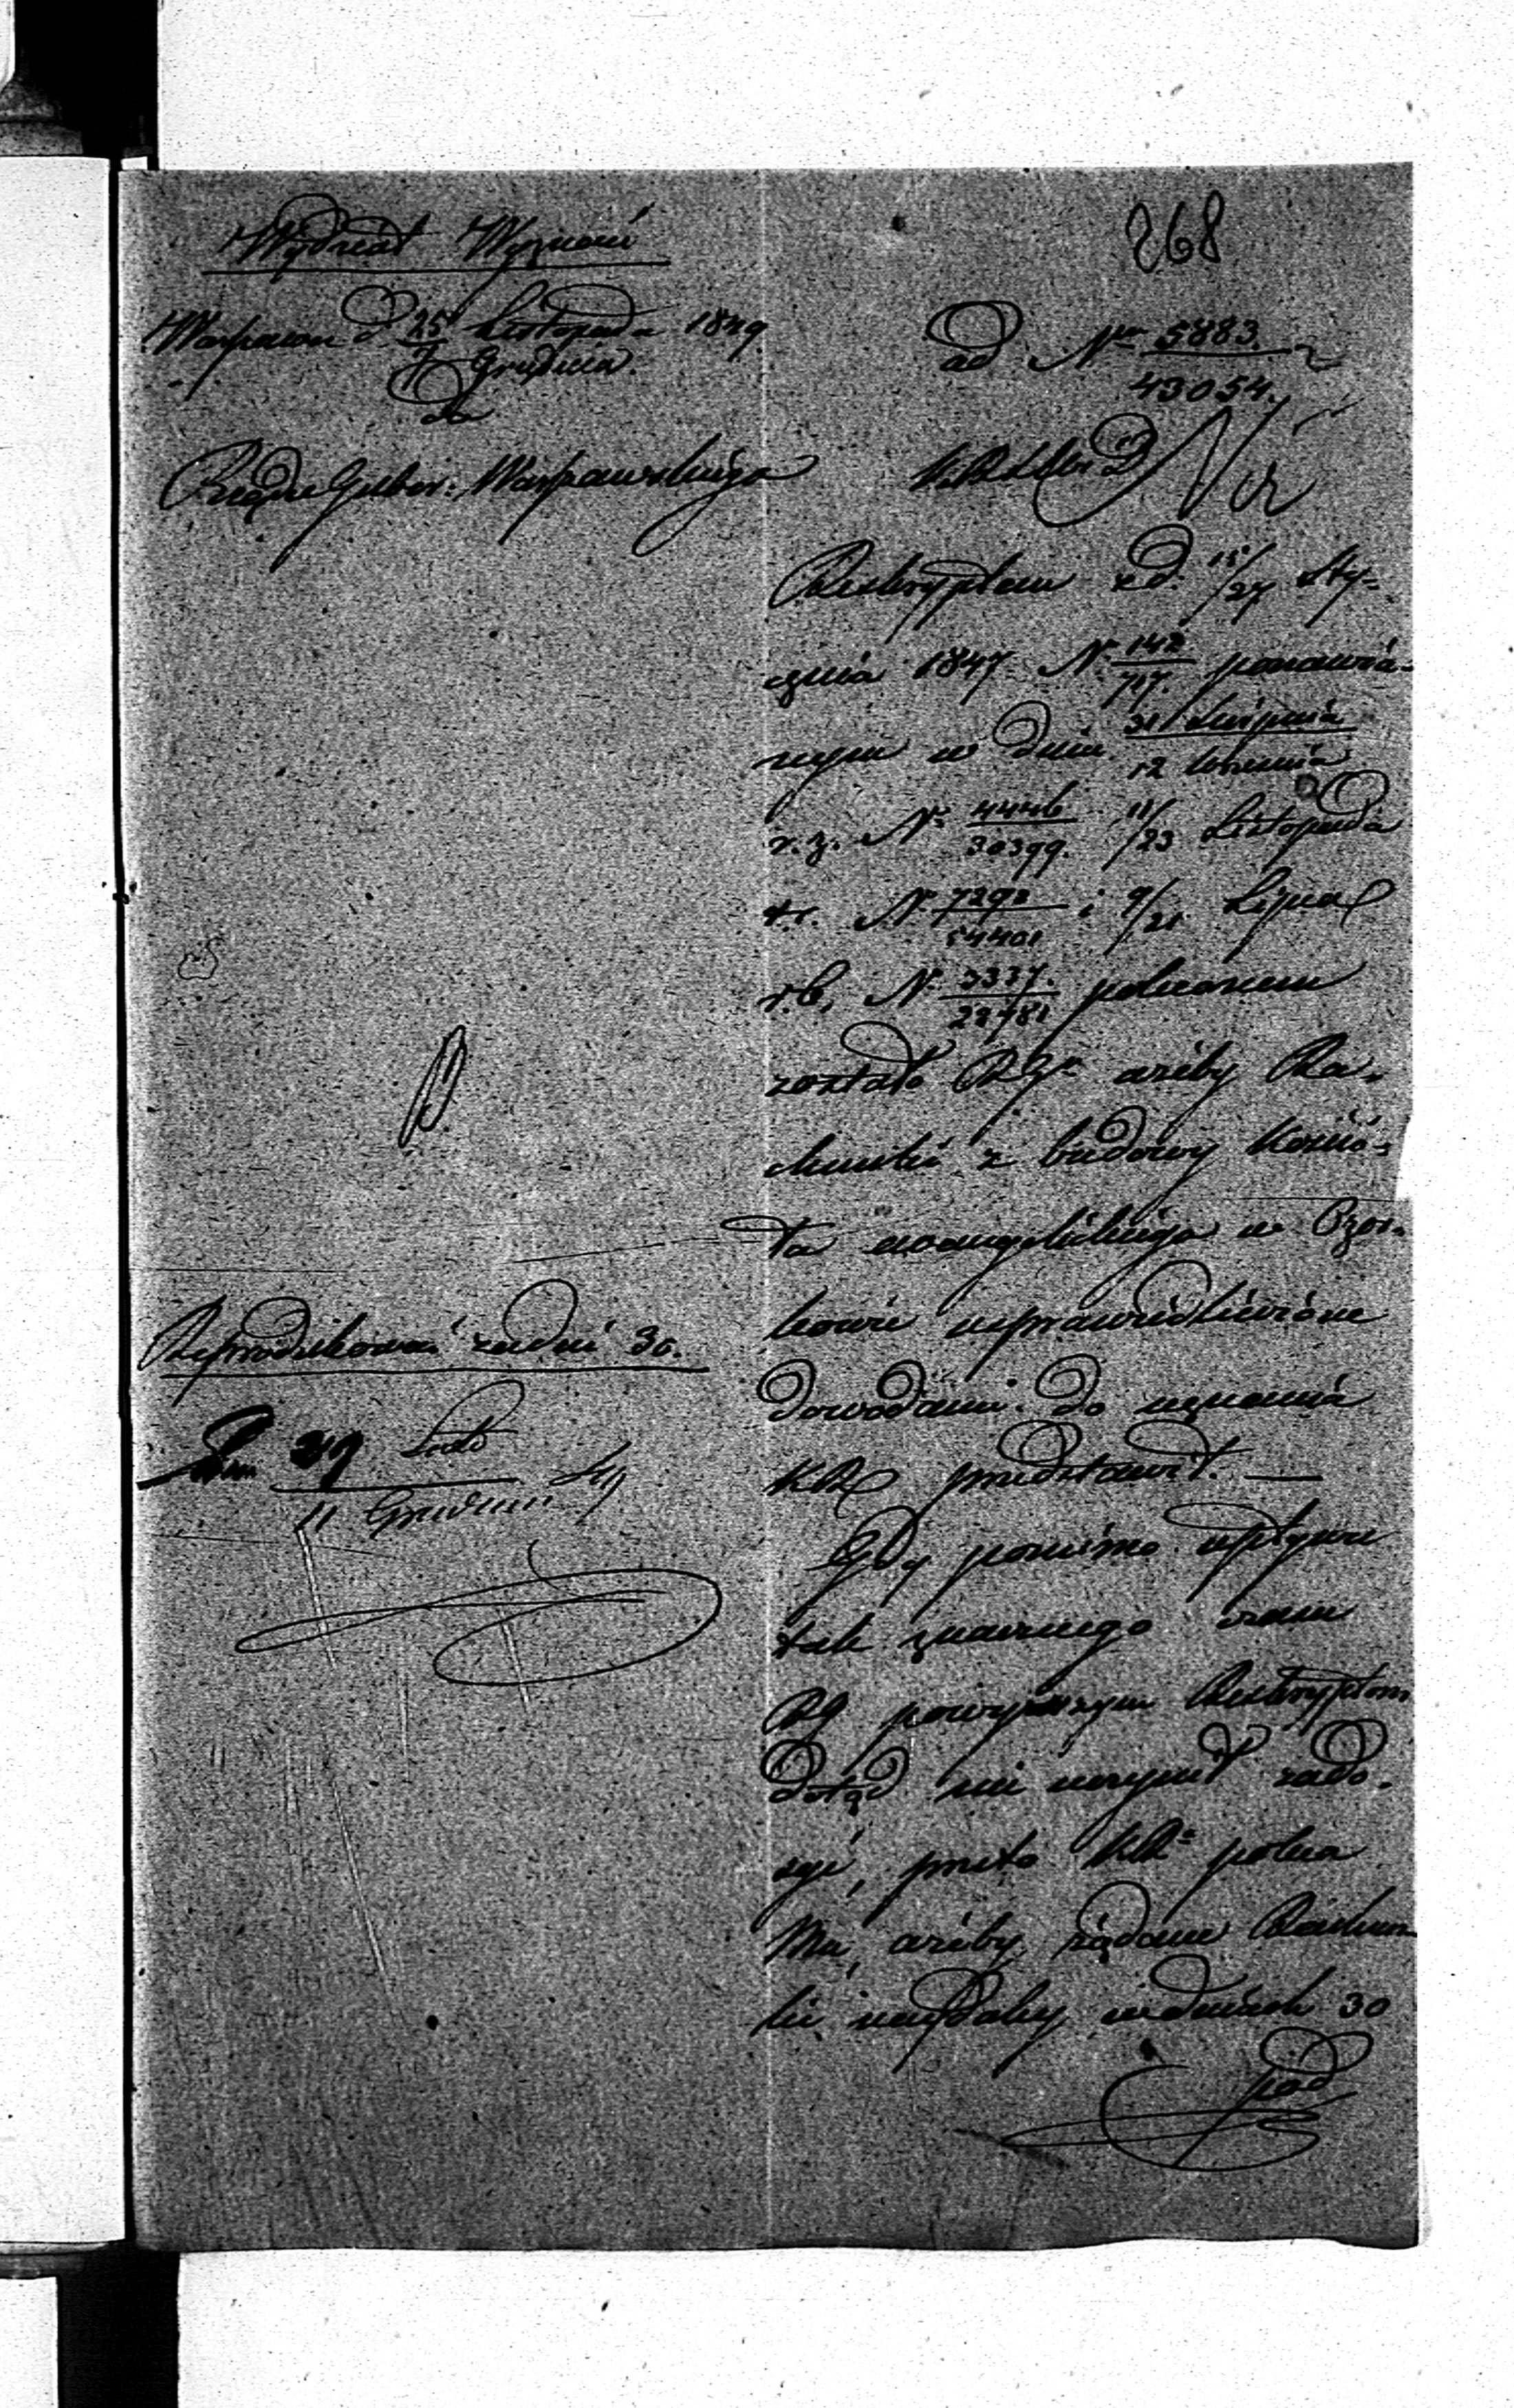 268
Wydział Wyznań
Warszawa d. 25 Listopada 1849
7 Grudnia.
do
Rządu Guber: Warszawskiego
ad Nrum 5883.
43054.
Reskryptem z d. 15/27 Sty-
cznia 1847 N. 142/717. ponawia-
nym w dniu 31 Sierpnia
12 Września
r. z. N. 4446/30399. 11/23 Listopada
t.r. N. 7292/54401 i 9/21 Lipca
r.b. N. 3337./22781 poleconem
zostało RGu ażeby Ra-
chunki z budowy Kościo-
ła ewangelickiego w Ozor-
kowie usprawiedliwione
dowodami do uznania
KR przedstawił. —
Gdy pomimo upływu
tak znacznego czasu
RG powyższym Reskryptom
dotąd nie uczynił zado-
syć, przeto KRa poleca
Mu, ażeby żądane Rachun-
ki najdaley w dniach 30
pod
Reprodukować za dni 30.
29 Listo
11 Grudnia 49